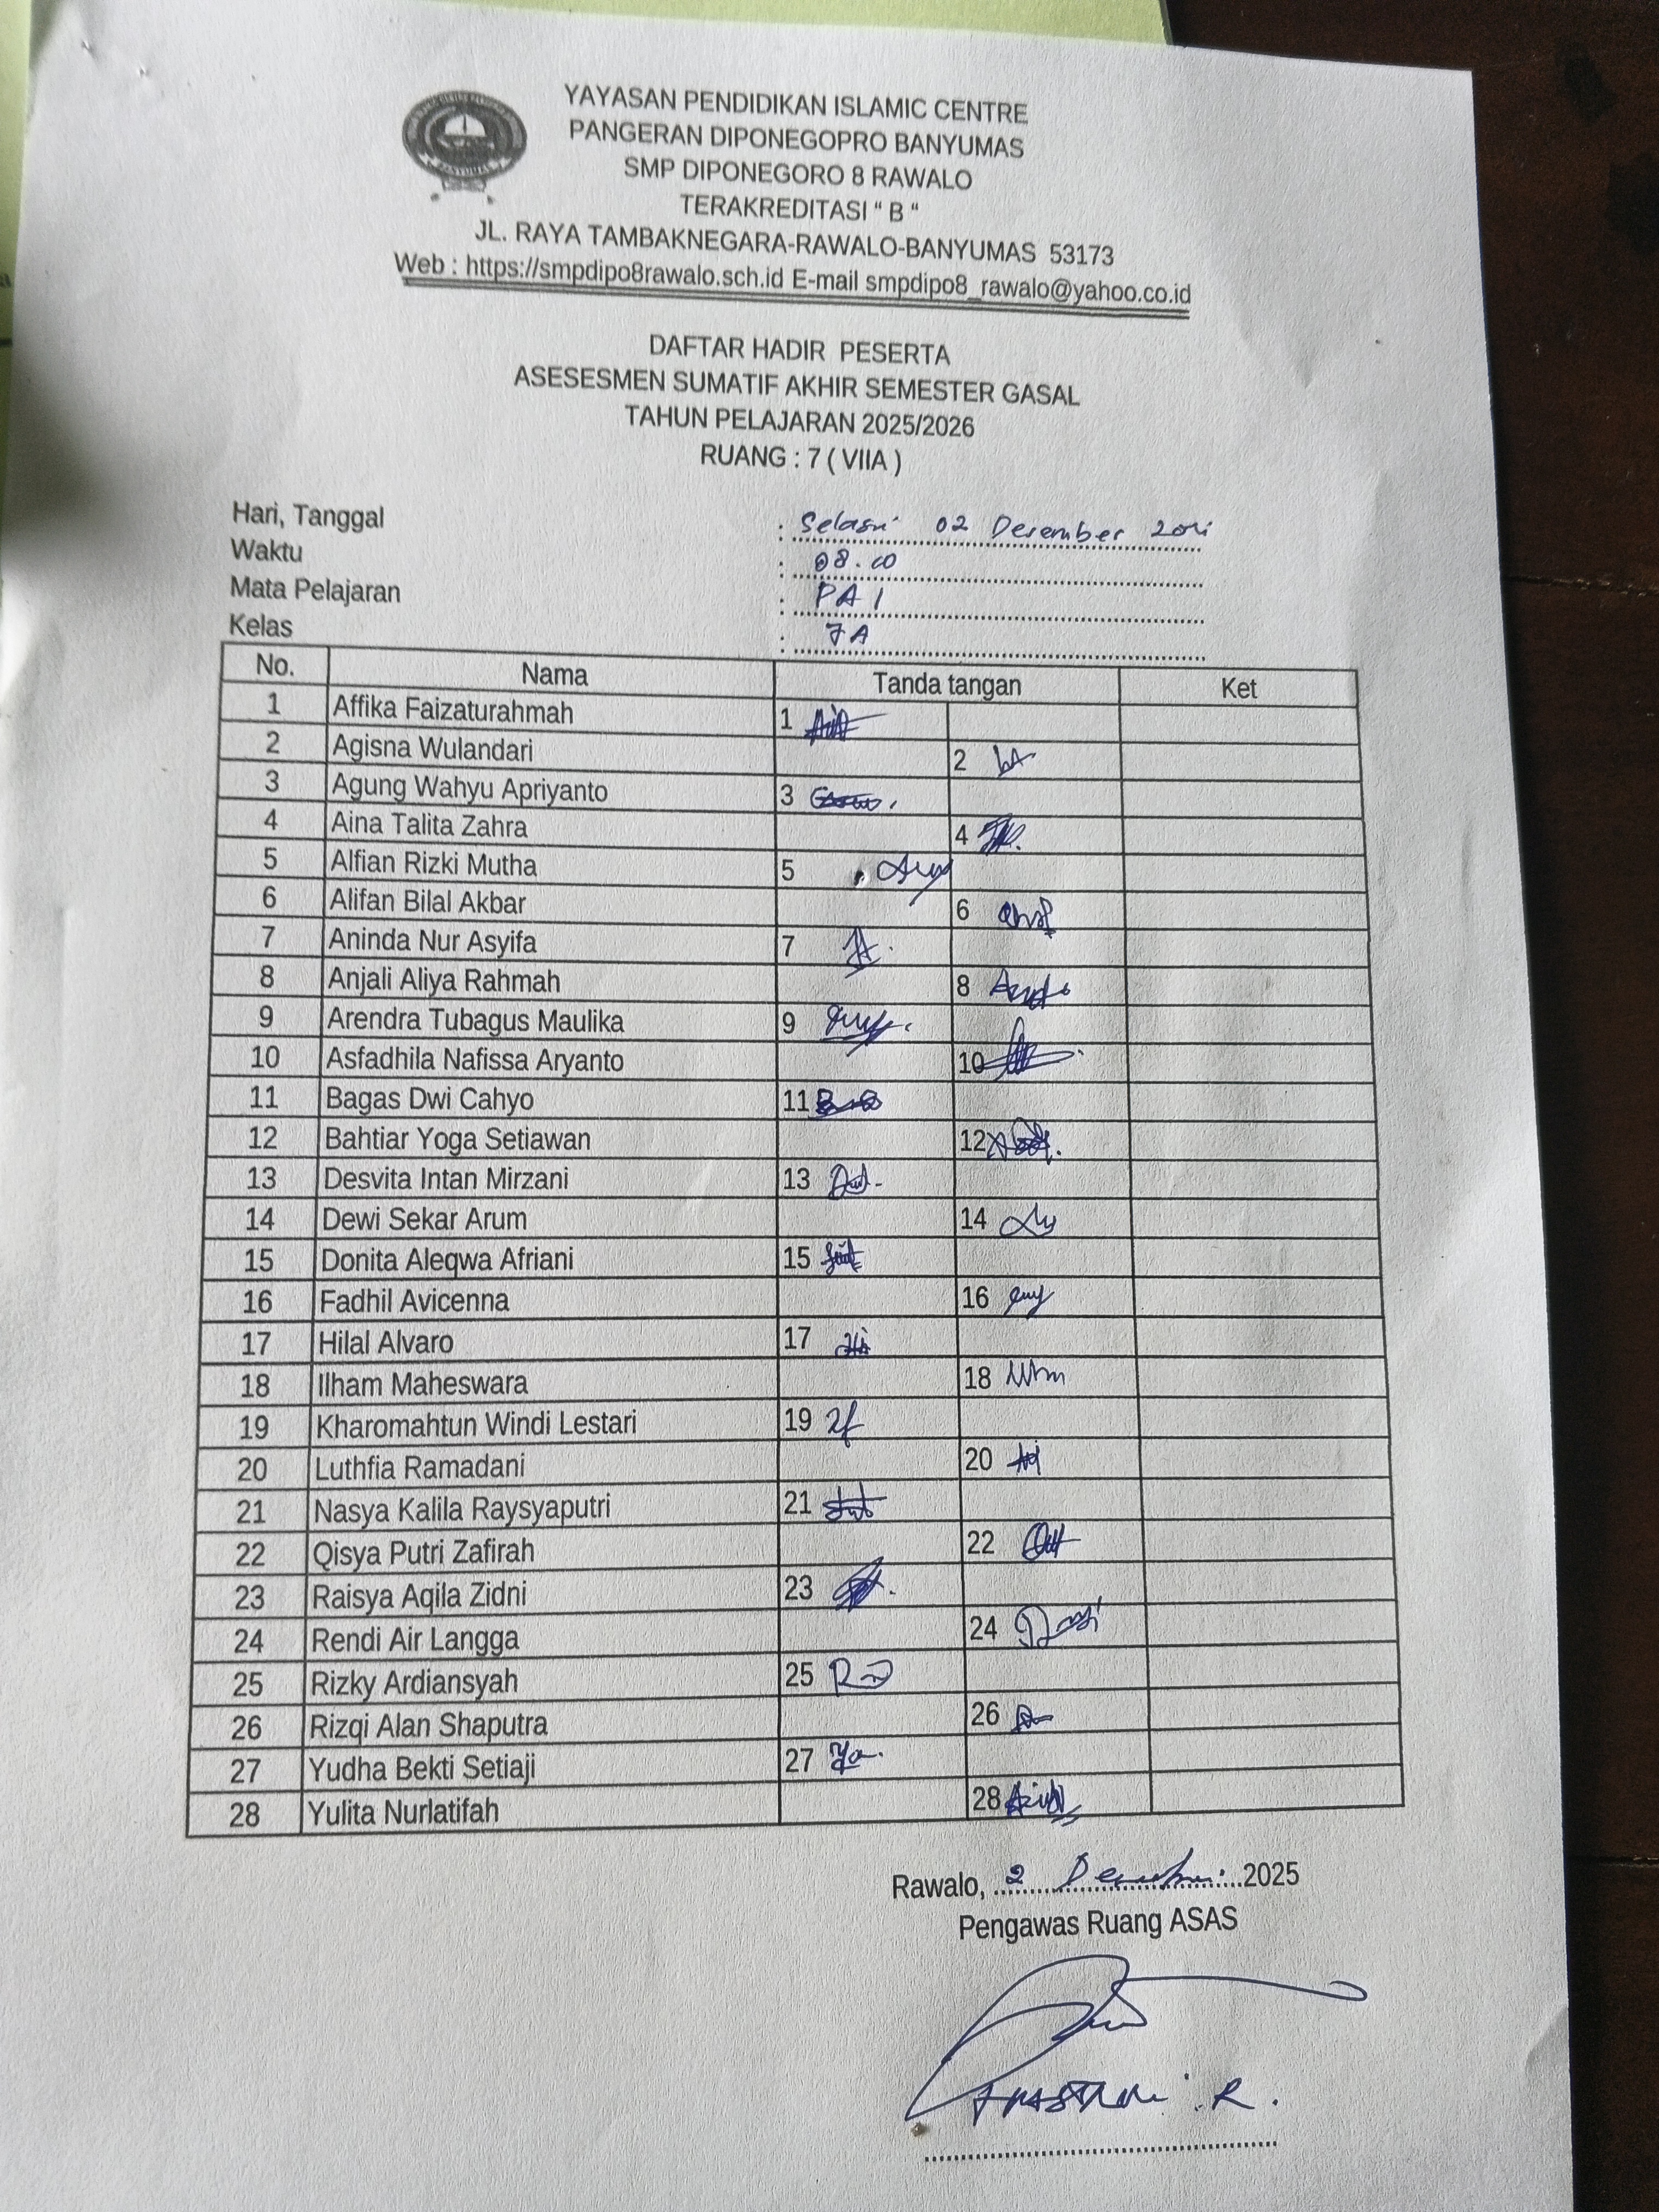 YAYASAN PENDIDIKAN ISLAMIC CENTRE
PANGERAN DIPONEGOPRO BANYUMAS
SMP DIPONEGORO 8 RAWALO
TERAKREDITASI “ B “
JL. RAYA TAMBAKNEGARA-RAWALO-BANYUMAS 53173
Web : https://smpdipo8rawalo.sch.id E-mail smpdipo8_rawalo@yahoo.co.id
DAFTAR HADIR PESERTA
ASESESMEN SUMATIF AKHIR SEMESTER GASAL
TAHUN PELAJARAN 2025/2026
RUANG : 7 ( VIIA )
Hari, Tanggal : Selasa 02 Desember
Waktu : 08.00
Mata Pelajaran : PAI
Kelas : 7A
No. Nama Tanda tangan Ket
1 Affika Faizaturahmah 1
2 Agisna Wulandari 2
3 Agung Wahyu Apriyanto 3
4 Aina Talita Zahra 4
5 Alfian Rizki Mutha 5
6 Alifan Bilal Akbar 6
7 Aninda Nur Asyifa 7
8 Anjali Aliya Rahmah 8
9 Arendra Tubagus Maulika 9
10 Asfadhila Nafissa Aryanto 10
11 Bagas Dwi Cahyo 11
12 Bahtiar Yoga Setiawan 12
13 Desvita Intan Mirzani 13
14 Dewi Sekar Arum 14
15 Donita Aleqwa Afriani 15
16 Fadhil Avicenna 16
17 Hilal Alvaro 17
18 Ilham Maheswara 18
19 Kharomahtun Windi Lestari 19
20 Luthfia Ramadani 20
21 Nasya Kalila Raysyaputri 21
22 Qisya Putri Zafirah 22
23 Raisya Aqila Zidni 23
24 Rendi Air Langga 24
25 Rizky Ardiansyah 25
26 Rizqi Alan Shaputra 26
27 Yudha Bekti Setiaji 27
28 Yulita Nurlatifah 28
Rawalo, 2 Desember 2025
Pengawas Ruang ASAS
R.